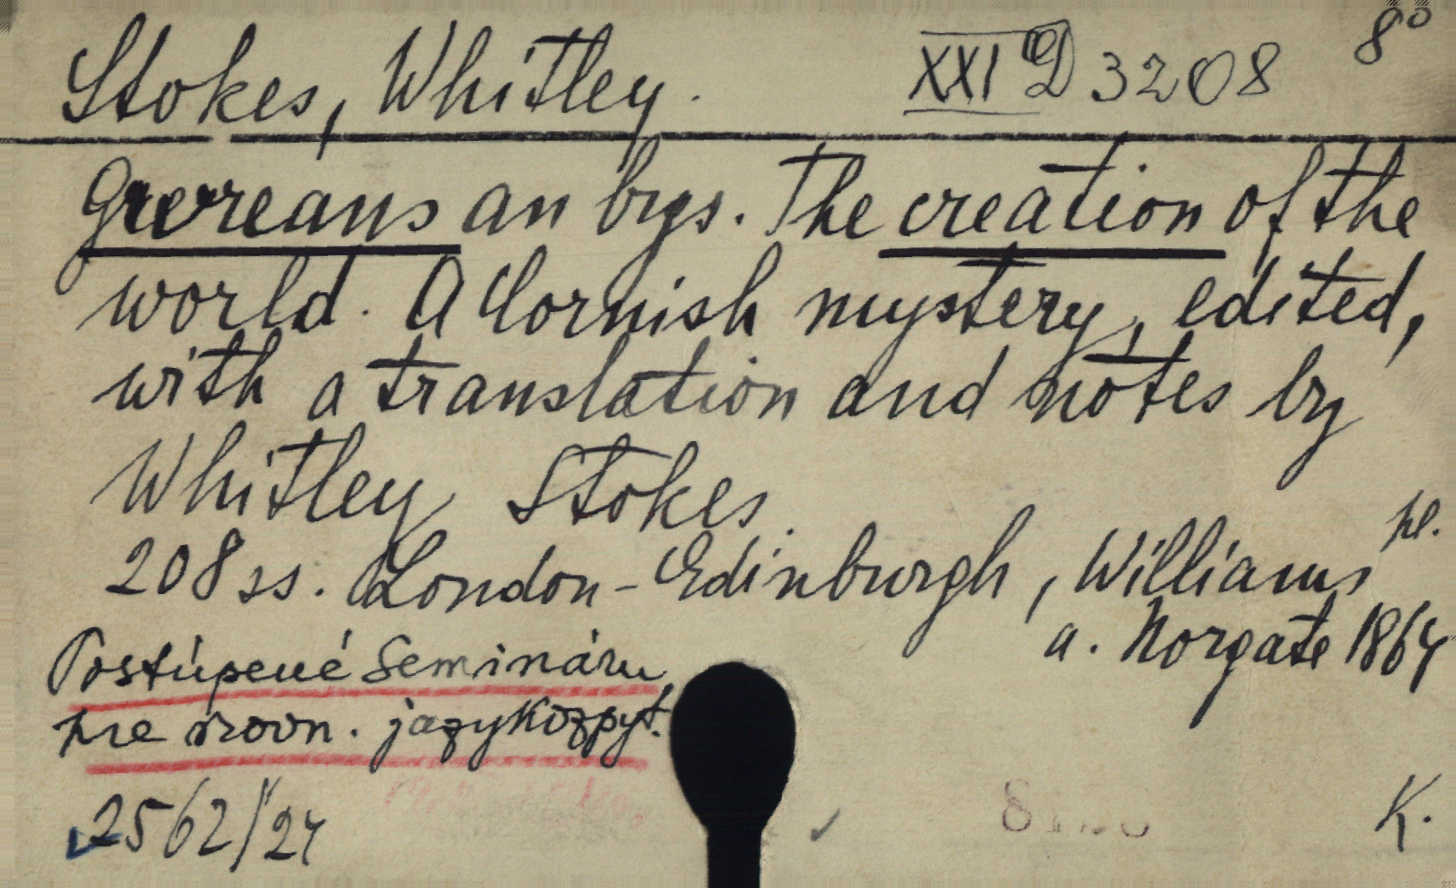 Stokes, Whitley. XXI D 3208 8°
Gwreans an bys. The creation of the
world. A Cornish mystery, edited,
with a translation and notes by
Whitley Stokes.
208 ss. London-Edinburgh, Williams
a. Norgate 1864
Postúpené Semináru
pre srovn. jazykozpyt.
2562/24
K.